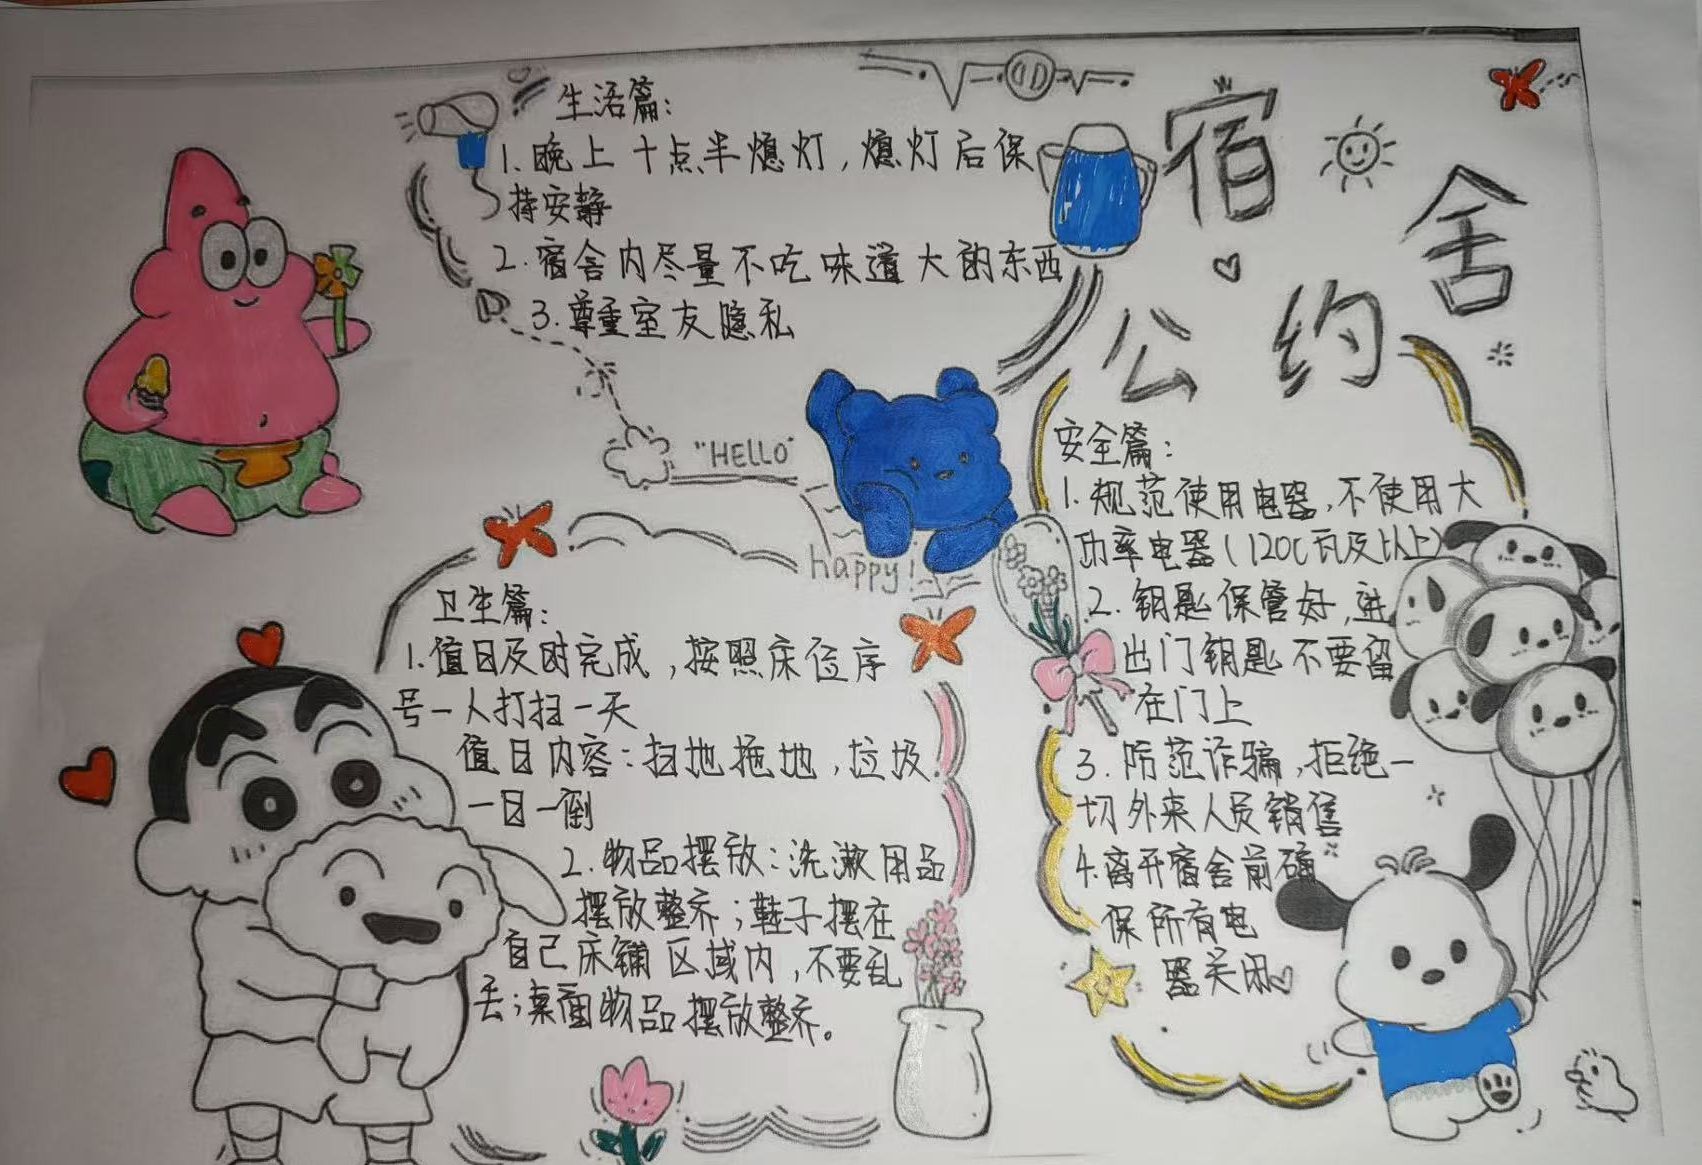 宿舍
公约
生活篇：
1.晚上十点半熄灯，熄灯后保
持安静
2.宿舍内尽量不吃味道大的东西
3.尊重室友隐私
"HELLO"
happy!
卫生篇：
1.值日及时完成，按照床位序
号一人打扫一天
值日内容：扫地拖地，垃圾
一日一倒
2.物品摆放：洗漱用品
摆放整齐；鞋子摆在
自己床铺区域内，不要乱
丢；桌面物品摆放整齐。
安全篇：
1.规范使用电器，不使用大
功率电器（1200瓦及以上）
2.钥匙保管好，进
出门钥匙不要留
在门上
3.防范诈骗，拒绝一
切外来人员销售
4.离开宿舍前确
保所有电
器关闭